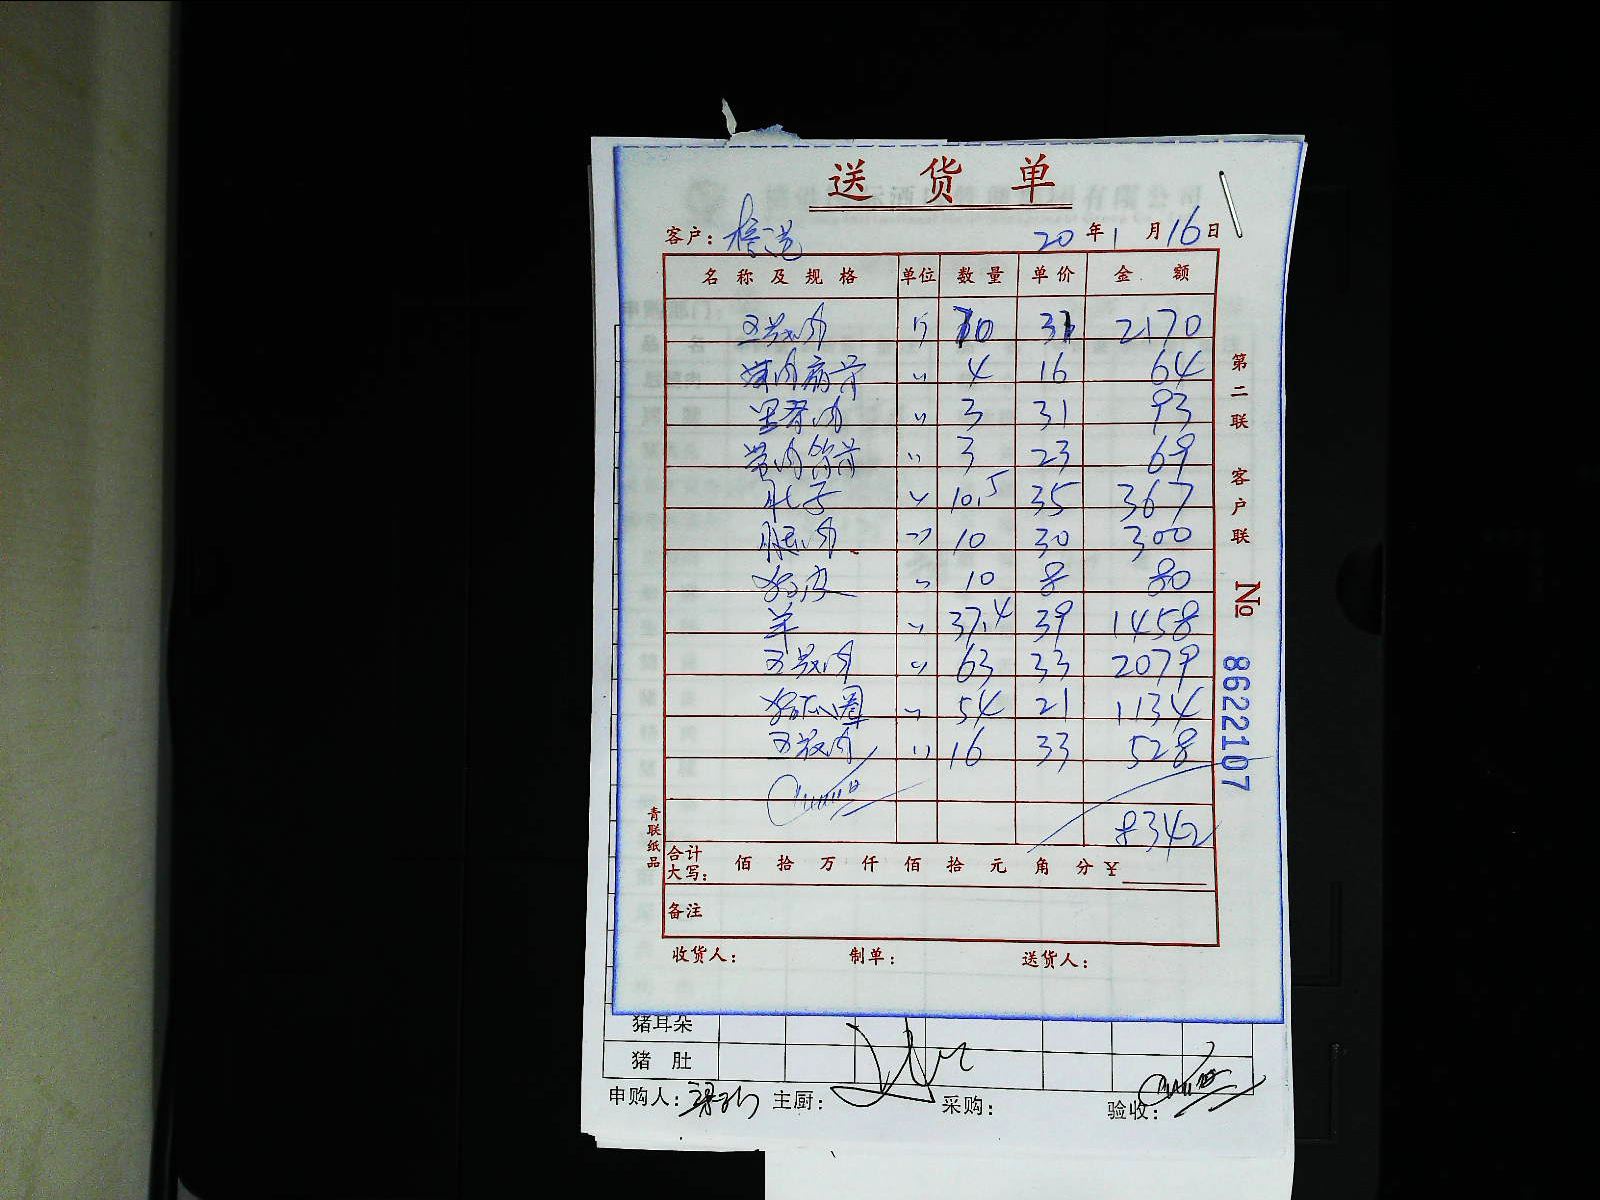 送货单
客户: 20年1月16日
名称及规格 单位 数量 单价 金额
五花肉 斤 70 31 2170
4 16 64
里脊肉 〃 3 31 93
带肉筒骨 〃 3 23 69
肚子 〃 10.5 35 367
腿肉 〃 10 30 300
猪皮 〃 10 8 80
羊 〃 37.4 39 1458
五花肉 〃 63 33 2079
54 21 1134
五花肉 〃 16 33 528
8342
合计大写: 佰拾万仟佰拾元角分¥
备注
收货人: 制单: 送货人:
第二联 客户联
№ 8622107
青联纸品
猪耳朵
猪肚
申购人: 主厨: 采购: 验收: